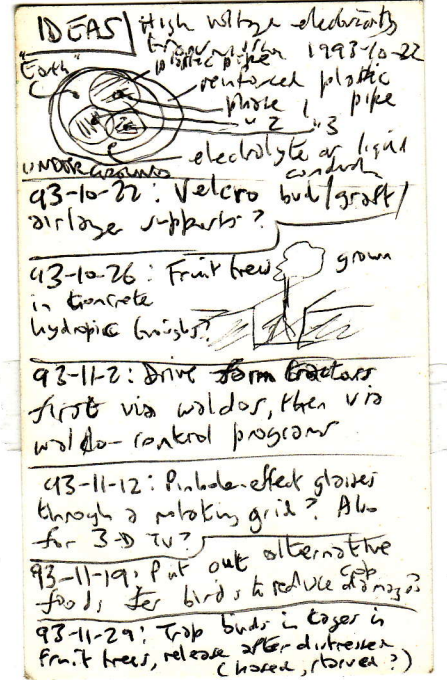 IDEAS
High voltage electricity
transmission 1993-10-22
"Earth" plastic pipe
reinforced plastic
phase 1 pipe
" 2 " 3
electrolyte or liquid
UNDERGROUND conductor
93-10-22: Velcro bud/graft/
airlayer supports?
93-10-26: Fruit trees grown
in concrete
hydropic troughs?
93-11-2: Drive farm tractors
first via waldos, then via
waldo-control programs
93-11-12: Pinhole-effect glasses
through a rotating grid? Also
for 3-D TV?
93-11-19: Put out alternative
foods for birds to reduce crop damage?
93-11-29: Trap birds in cages in
fruit trees, release after distressed
(hosed, starved?)